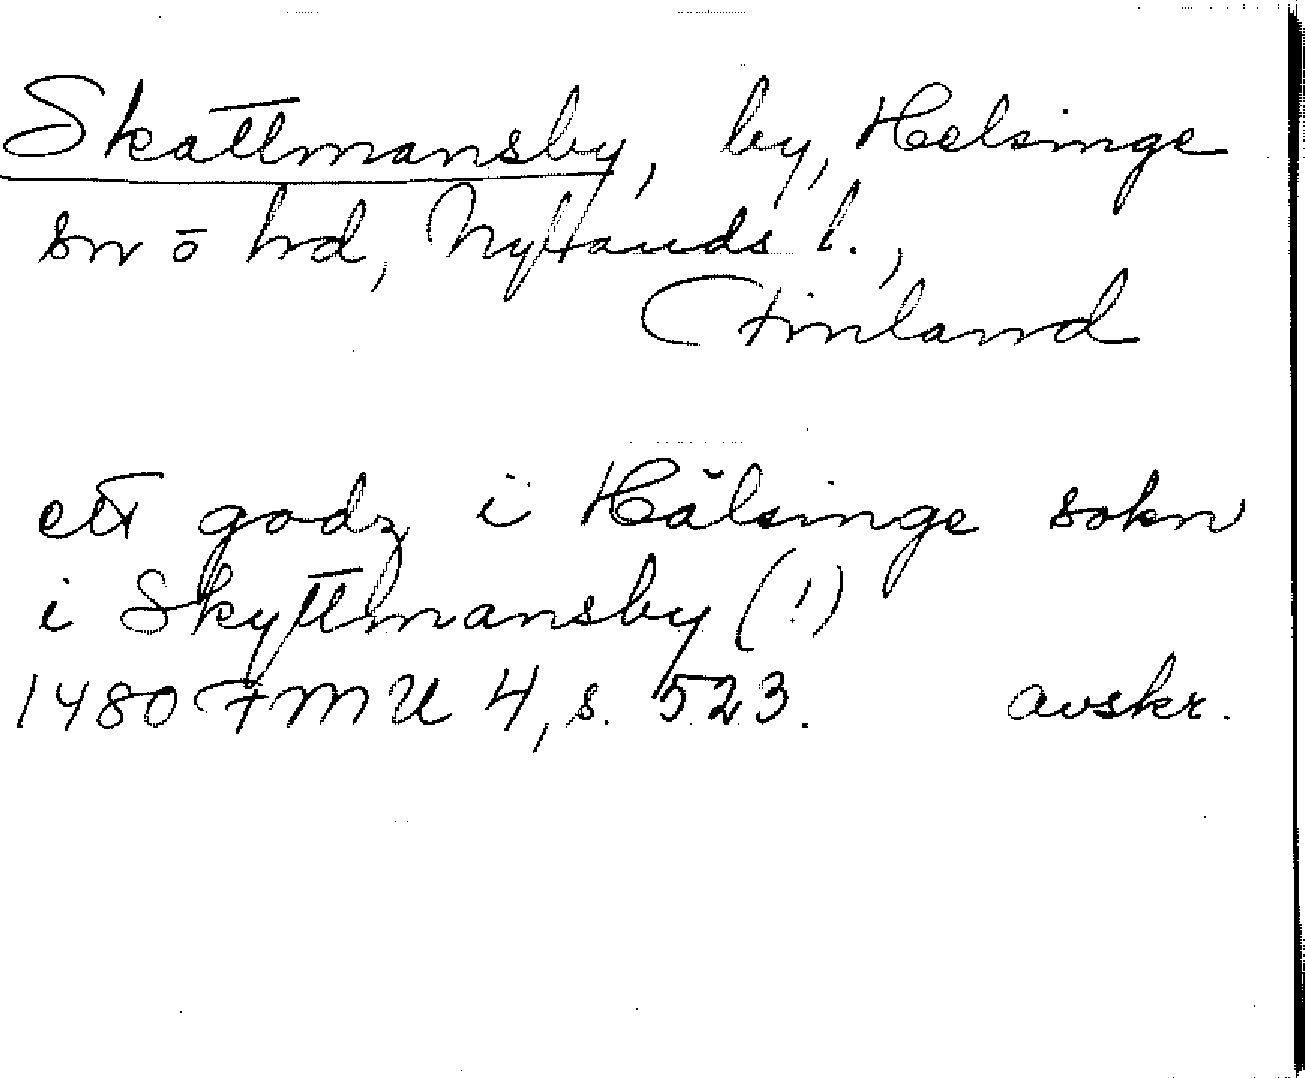 Skattmansby, by, Helsinge
sn o hd, Nylands l.,
Finland
ett godz i Hälsinge sokn
i Skyttmansby (!)
1480 FMU 4, s. 523. avskr.